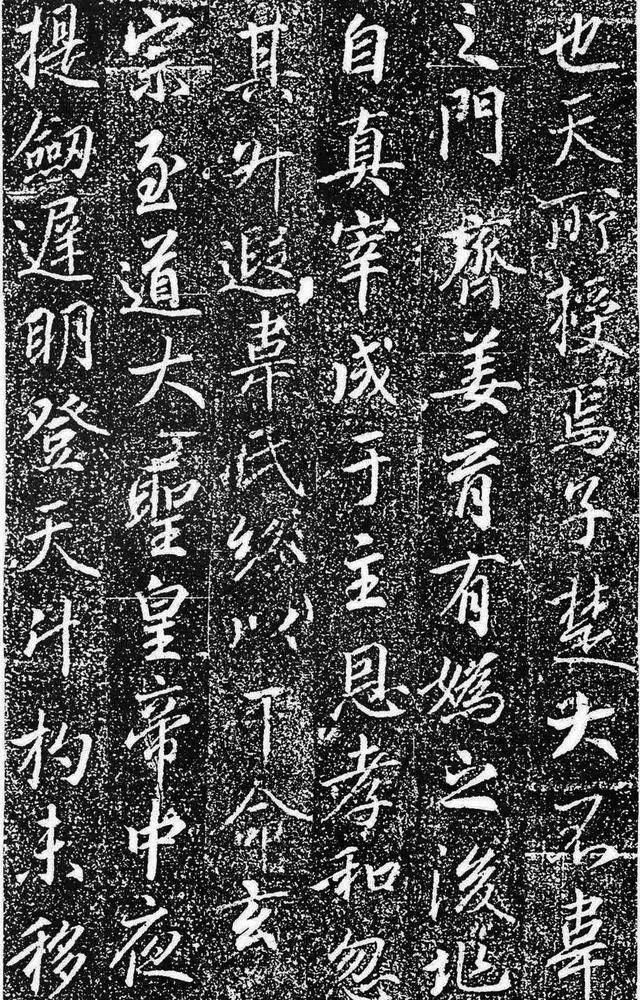 也天所授焉子楚大韋
之門齊姜育有媯之後地
自真宰成于主恩孝和忽
其升遐韋氏紛以干命玄
宗至道大聖皇帝中夜
提劔遲明登天斗杓未移